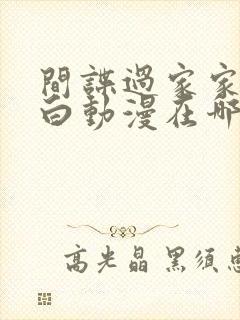 間諜過家家
白動漫在哪
高光晶 黑須惠